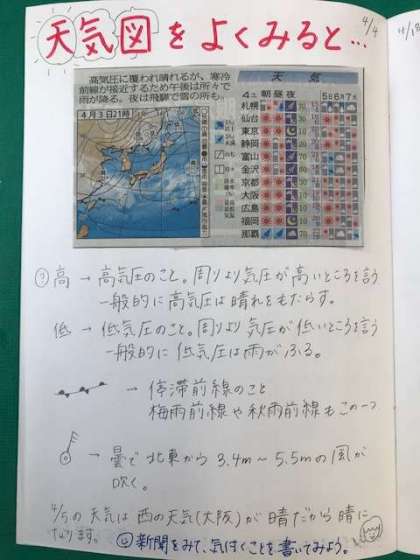 天気図をよくみると…
4/4
高気圧に覆われ晴れるが、寒冷
前線が接近するため午後は所々で
雨が降る。夜は飛騨で雪の所も。
4月3日21時
天気
4土 朝昼夜 5日6月7火
札幌
仙台
東京
静岡
富山
金沢
京都
大阪
広島
福岡
那覇
高 → 高気圧のこと。周りより気圧が高いところを言う
一般的に高気圧は晴れをもたらす。
低 → 低気圧のこと。周りより気圧が低いところを言う
一般的に低気圧は雨がふる。
→ 停滞前線のこと
梅雨前線や秋雨前線もこの一つ
→ 曇で北東から3.4m～5.5mの風が
吹く。
4/5の天気は西の天気(大阪)が晴だから晴に
なります。
新聞をみて、気付くことを書いてみよう。